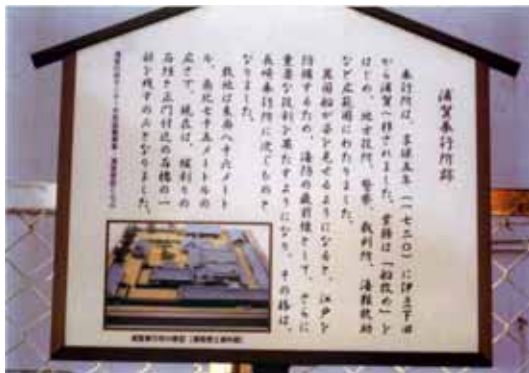 浦賀奉行所跡
奉行所は、享保五年(一七二〇)に伊豆下田
から浦賀へ移されました。業務は「船改め」を
はじめ、地方役所、警察、裁判所、海難救助
など広範囲にわたりました。
異国船が姿を見せるようになると、江戸を
防備するため、海防の最前線として、さらに
重要な役割を果たすようになり、その格は、
長崎奉行所に次ぐものと
なりました。
敷地は東西八十六メート
ル、南北七十五メートルの
広さで、現在は、堀割りの
石垣と正門付近の石橋の一
部を残すのみとなりました。
浦賀奉行所の模型(浦賀郷土資料館)